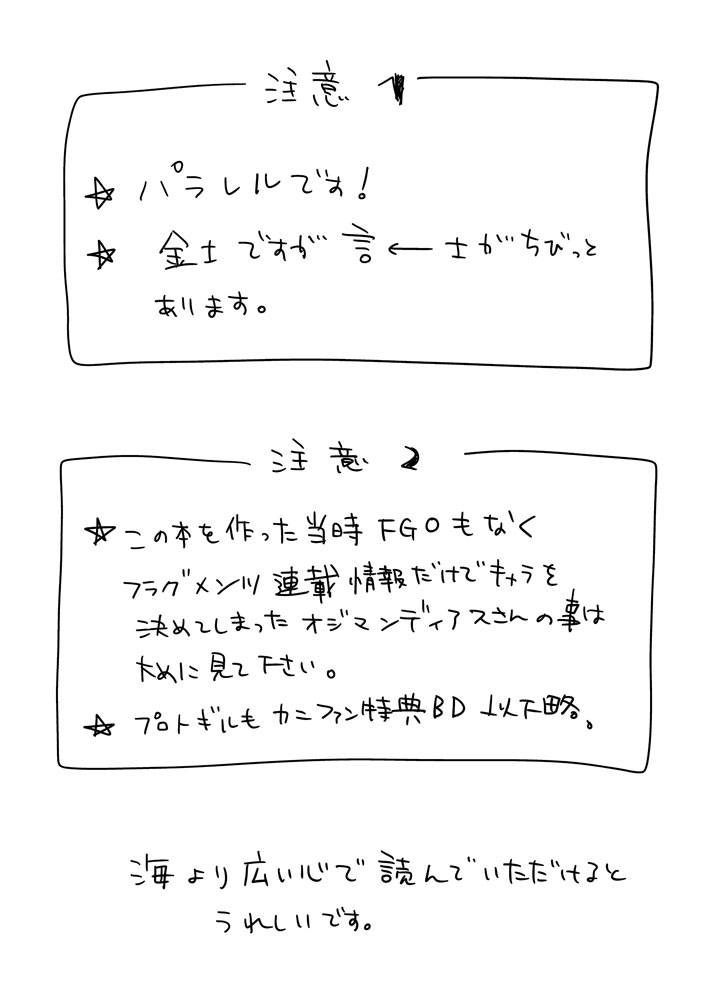 注意 1
☆ パラレルです!
☆ 金士ですが 言←士がちびっと
あります。
注意 2
☆ この本を作った当時FGOもなく
フラグメンツ連載情報だけでキャラを
決めてしまったオジマンディアスさんの事は
大めに見て下さい。
☆ プロトギルもカニファン特典BD以下略。
海より広い心で読んでいただけると
うれしいです。